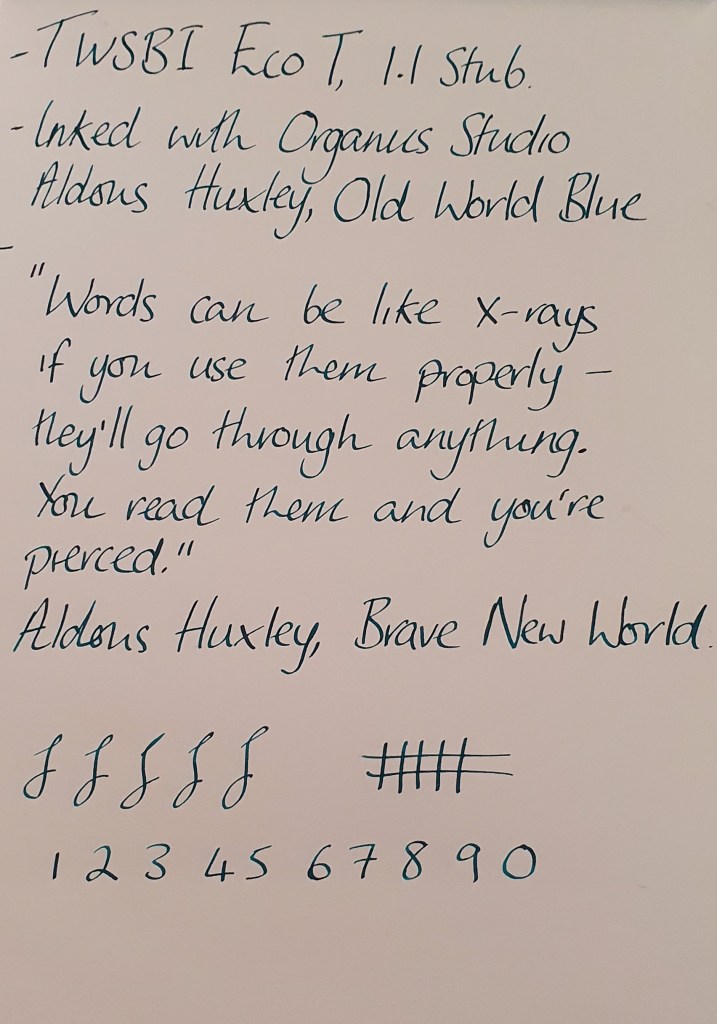 - TWSBI Eco T, 1.1 Stub.
- Inked with Organics Studio
Aldous Huxley, Old World Blue
-
"Words can be like X-rays
if you use them properly –
they'll go through anything.
You read them and you're
pierced."
Aldous Huxley, Brave New World.
f f f f f
1 2 3 4 5 6 7 8 9 0